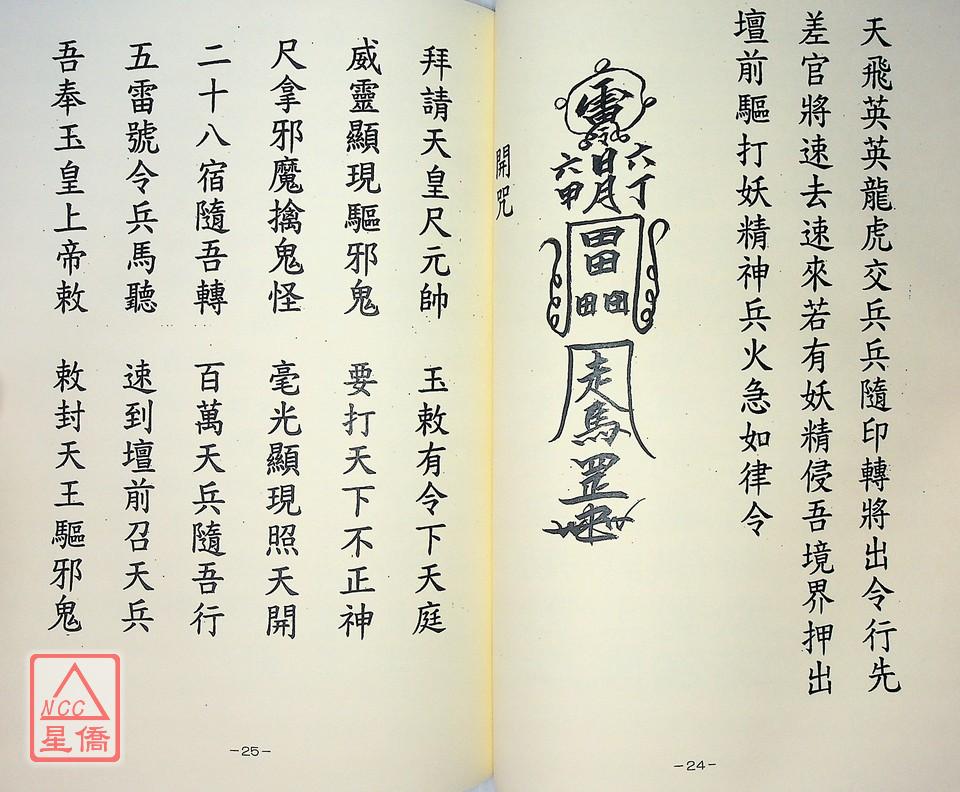 天飛英英龍虎交兵兵隨印轉將出令行先
差官將速去速來若有妖精侵吾境界押出
壇前驅打妖精神兵火急如律令
雷
六丁
日月
六甲
走馬
罡
開咒
-24-
拜請天皇尺元帥　玉敕有令下天庭
威靈顯現驅邪鬼　要打天下不正神
尺拿邪魔擒鬼怪　毫光顯現照天開
二十八宿隨吾轉　百萬天兵隨吾行
五雷號令兵馬聽　速到壇前召天兵
吾奉玉皇上帝敕　敕封天王驅邪鬼
-25-
NCC
星僑